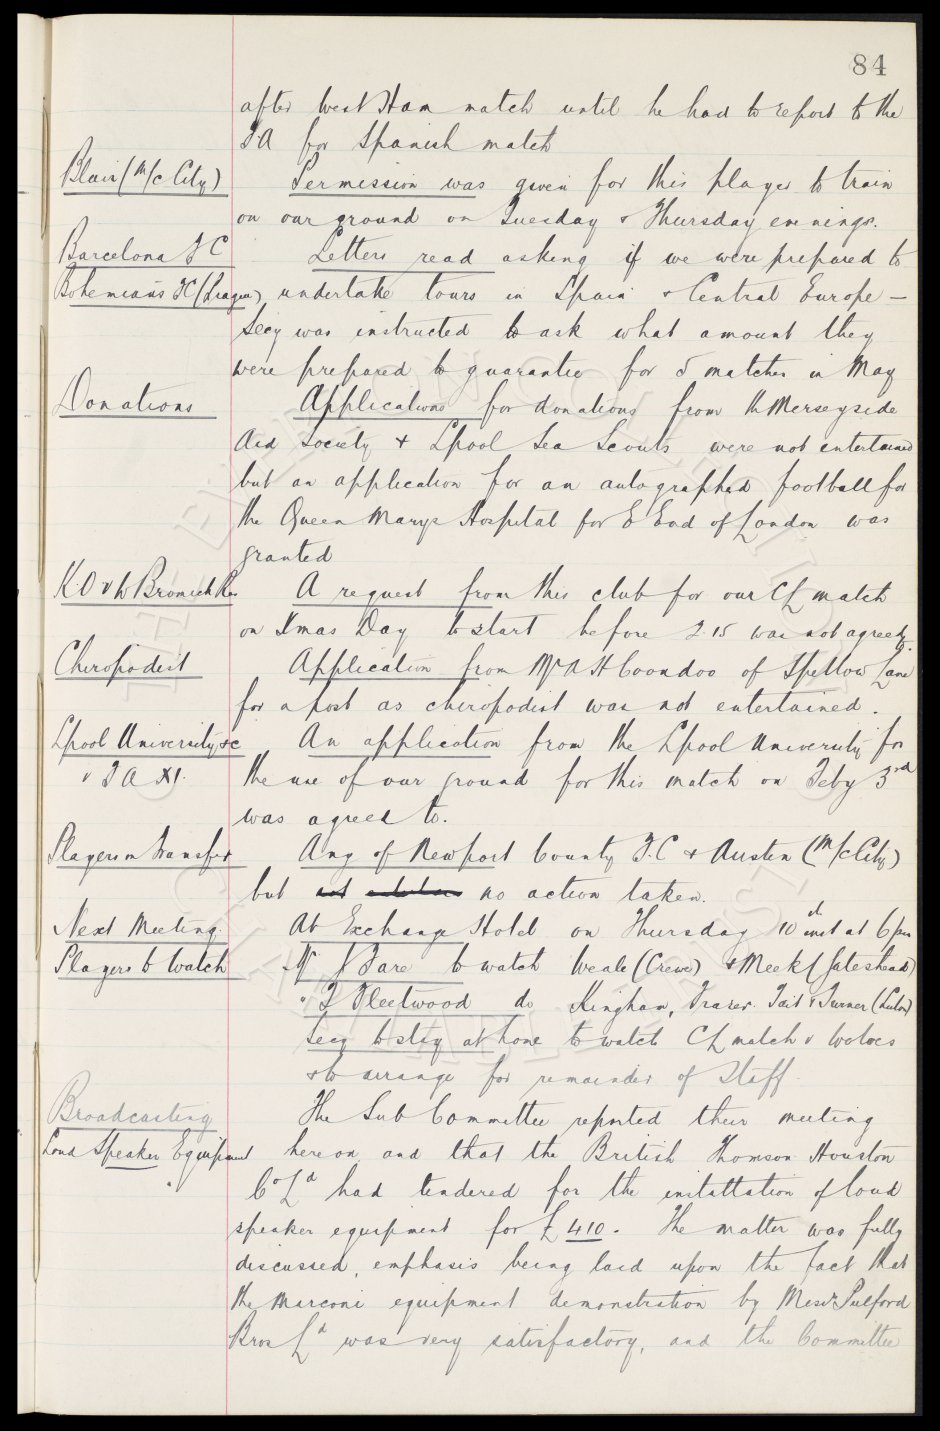 84
after West Ham match until he had to report to the
FA for Spanish match
Blair (M/c City) Permission was given for this player to train
on our ground on Tuesday & Thursday evenings.
Barcelona F C Letters read asking if we were prepared to
Bohemians FC (Prague), undertake tours in Spain & Central Europe —
Secy was instructed to ask what amount they
were prepared to guarantee for 5 matches in May
Donations Applications for donations from the Merseyside
Aid Society & Lpool Sea Scouts were not entertained
but an application for an autographed football for
the Queen Marys Hospital for E End of London was
granted
K.O v W Bromwich Res A request from this club for our CL match
on Xmas Day to start before 2.15 was not agreed to.
Chiropodist Application from Mr A H Coondoo of Spellow Lane
for a post as chiropodist was not entertained.
Lpool University &c An application from the Lpool University for
v F A XI. the use of our ground for this match on Feby 3rd
was agreed to.
Players on Transfer Amy of Newport County F.C & Austin (M/c City)
but no action taken.
Next Meeting. At Exchange Hotel on Thursday 10th inst at 6 pm
Players to Watch Mr J Fare to watch Weale (Crewe) & Meek (Gateshead)
" F Fleetwood do Kingham, Fraser Tait & Turner (Luton)
Secy to stay at home to watch CL match v Wolves
& to arrange for remainder of Staff
Broadcasting The Sub Committee reported their meeting
Loud Speaker Equipment hereon and that the British Thomson Houston
" Co Ld had tendered for the installation of loud
speaker equipment for £410. The matter was fully
discussed, emphasis being laid upon the fact that
the Marconi equipment demonstration by Messrs Pulford
Bros Ld was very satisfactory, and the Committee